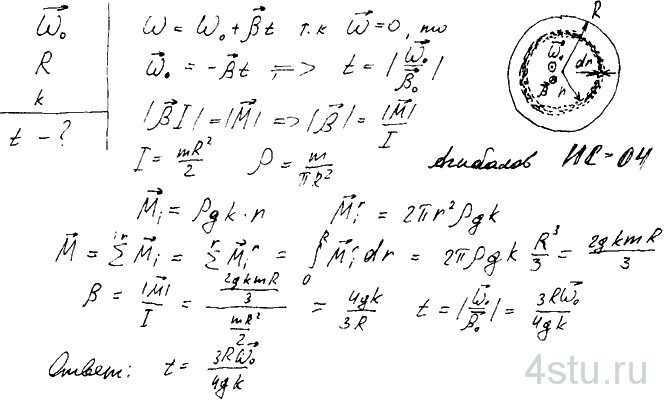 ω⃗₀
R
k
t - ?
ω = ω₀ + β⃗t т.к ω⃗ = 0, то
ω⃗₀ = -β⃗t => t = |ω⃗₀/β⃗₀|
|β⃗I| = |M⃗| => |β⃗| = |M⃗|/I
I = mR²/2 ρ = m/πR²
R
ω⃗₀
dr
β⃗
r
Агибалов ИС-04
M⃗ᵢ = ρgk·r M⃗ᵢʳ = 2πr²ρgk
M⃗ = Σʳ M⃗ᵢ = Σʳ M⃗ᵢʳ = ∫₀ᴿ M⃗ᵢʳ dr = 2πρgk R³/3 = 2gkmR/3
β = |M⃗|/I = (2gkmR/3)/(mR²/2) = 4gk/3R t = |ω⃗₀/β⃗₀| = 3Rω⃗₀/4gk
Ответ: t = 3Rω⃗₀/4gk
4stu.ru